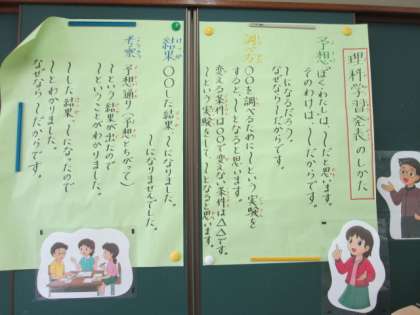 理科学習発表のしかた
予想 ぼく(わたし)は、〜だと思います。
そのわけは、〜だからです。
〜になるだろう。
なぜなら〜だからです。
調べ方 〇〇を調べるために〜という実験を
すると、〜となると思います。
変える条件は〇〇で変えない条件は△△です。
〜という実験をして、〜となると思います。
結果 〇〇した結果、〜になりました。
〜になりませんでした。
考察 予想通り(予想とちがって)
〜という結果が出たので
〜ということがわかりました。
〜した結果、〜になったので
〜とわかりました。
なぜなら、〜だからです。